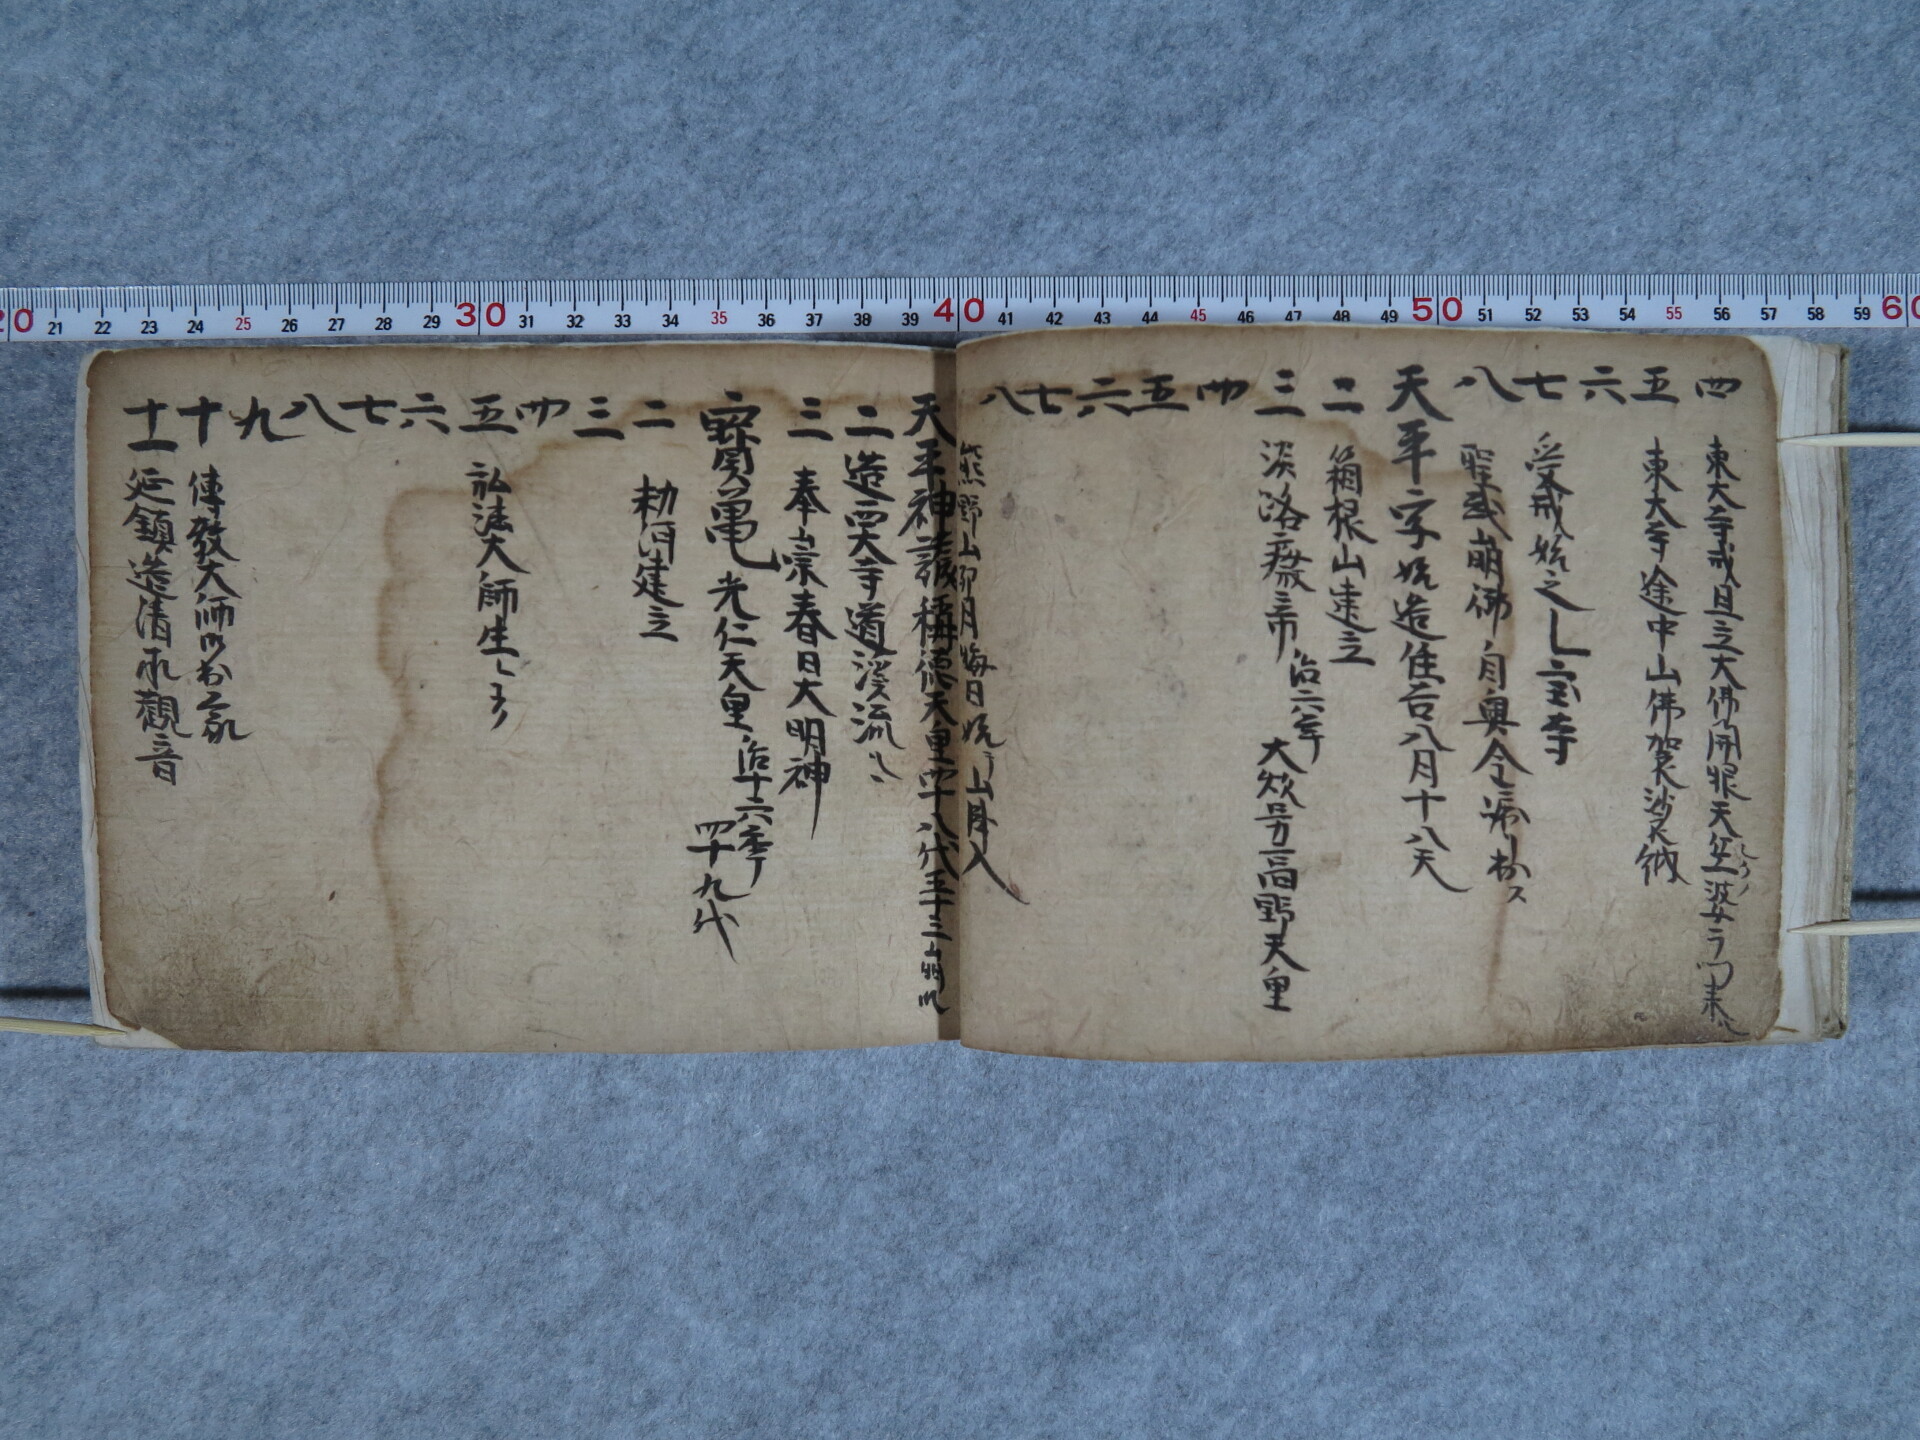 四 東大寺戒旦立大佛開眼天竺婆ラ門来
五 東大寺途中山佛袈裟沙衣納
六
七 受戒始之 宝寺
八 聖武崩佛自奥令
天平字始造住吉八月十八天
二 箱根山建立
三 淡路癈帝 治六年 大炊号高野天皇
四
五
六
七
八 熊野山卯月晦日始山降入
天平神護稱徳天皇四十八代五十三崩
二 造西大寺道溪流
三 奉崇春日大明神
寳亀 光仁天皇 治十六季 四十九代
二 勅河建立
三
四
五 弘法大師生
六
七
八
九
十 傳教大師出家
十一 延鎮造清水觀音
20 21 22 23 24 25 26 27 28 29 30 31 32 33 34 35 36 37 38 39 40 41 42 43 44 45 46 47 48 49 50 51 52 53 54 55 56 57 58 59 60